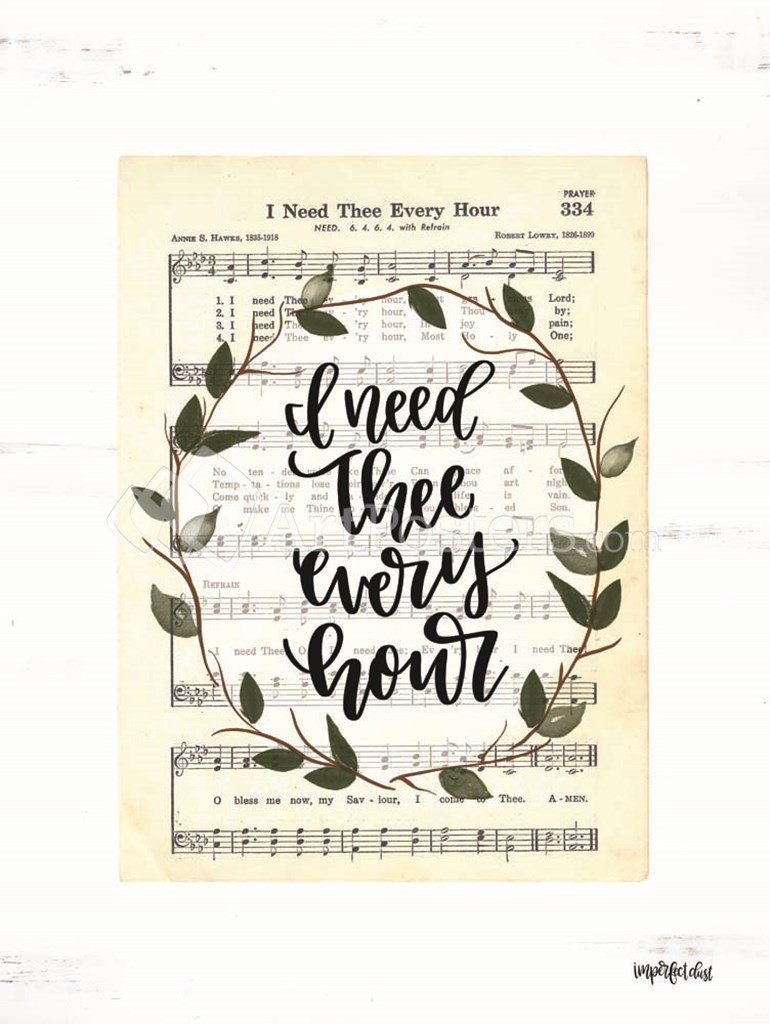 PRAYER
I Need Thee Every Hour 334
NEED. 6. 4. 6. 4. with Refrain
ANNIE S. HAWKS, 1835-1918 ROBERT LOWRY, 1826-1899
1. I need Thee ev - 'ry hour, Most Lord;
2. I need 'ry hour, Thou by;
3. I need 'ry hour, In joy pain;
4. I need Thee ev - 'ry hour, Most Ho - ly One;
I need
Thee
every
hour
No ten - der Thine Can af - ford
Temp - ta - tions lose When Thou art nigh
Come quick - ly and life is vain.
make me Thine bless - ed Son.
ArtPosters.com
REFRAIN
I need Thee, O I need Thee; Ev - 'ry hour I need Thee
O bless me now, my Sav - iour, I come to Thee. A-MEN.
imperfect dust